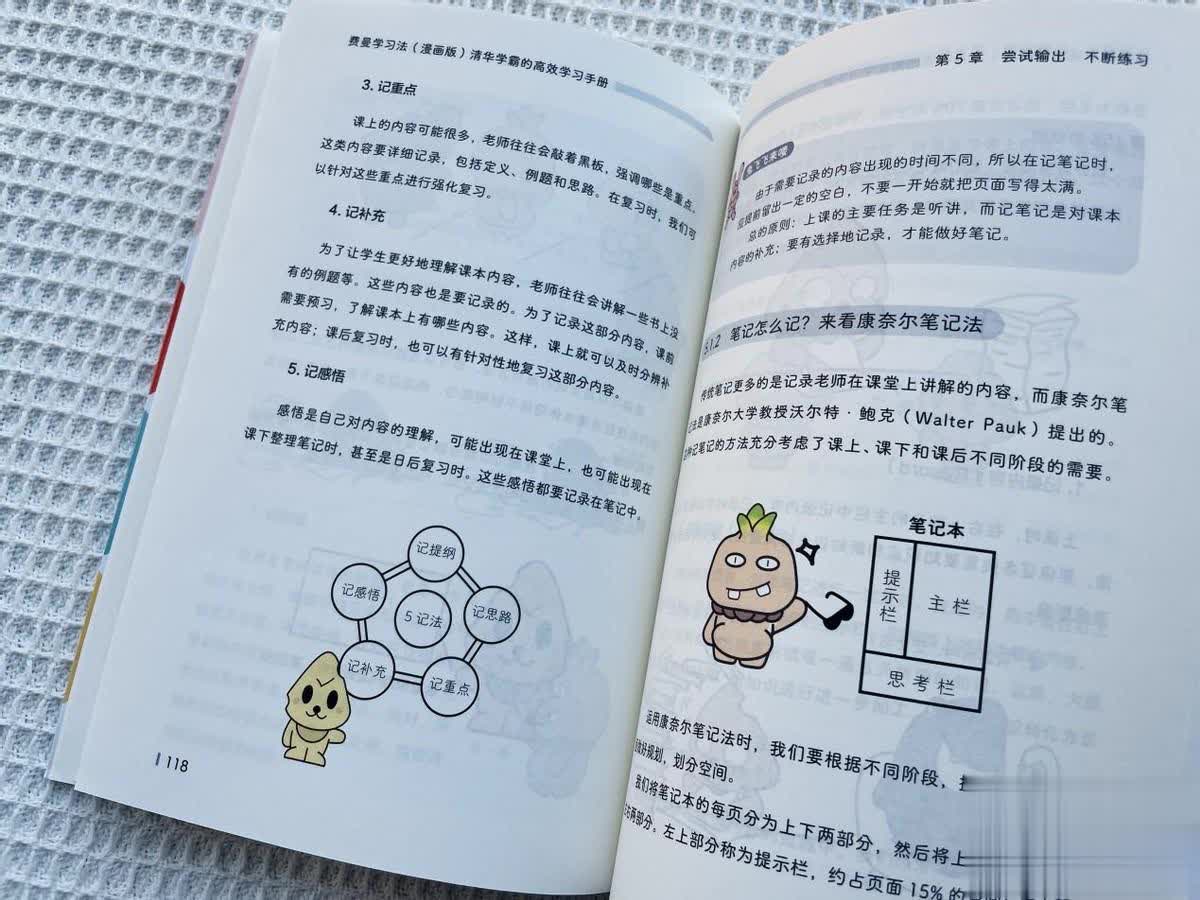 费曼学习法（漫画版）清华学霸的高效学习手册
3. 记重点
课上的内容可能很多，老师往往会敲着黑板，强调哪些是重点。
这类内容要详细记录，包括定义、例题和思路。在复习时，我们可
以针对这些重点进行强化复习。
4. 记补充
为了让学生更好地理解课本内容，老师往往会讲解一些书上没
有的例题等。这些内容也是要记录的。为了记录这部分内容，课前
需要预习，了解课本上有哪些内容。这样，课上就可以及时分辨补
充内容；课后复习时，也可以有针对性地复习这部分内容。
5. 记感悟
感悟是自己对内容的理解，可能出现在课堂上，也可能出现在
课下整理笔记时，甚至是日后复习时。这些感悟都要记录在笔记中。
记提纲
记感悟
记思路
5 记法
记补充
记重点
118
第 5 章 尝试输出 不断练习
飞来喽
由于需要记录的内容出现的时间不同，所以在记笔记时，
提前留出一定的空白，不要一开始就把页面写得太满。
总的原则：上课的主要任务是听讲，而记笔记是对课本
内容的补充；要有选择地记录，才能做好笔记。
5.1.2 笔记怎么记？来看康奈尔笔记法
传统笔记更多的是记录老师在课堂上讲解的内容，而康奈尔笔
记法是康奈尔大学教授沃尔特·鲍克（Walter Pauk）提出的。
这种记笔记的方法充分考虑了课上、课下和课后不同阶段的需要。
笔记本
提示栏
主栏
思考栏
运用康奈尔笔记法时，我们要根据不同阶段，
做好规划，划分空间。
我们将笔记本的每页分为上下两部分，然后将上
右两部分。左上部分称为提示栏，约占页面 15% 的